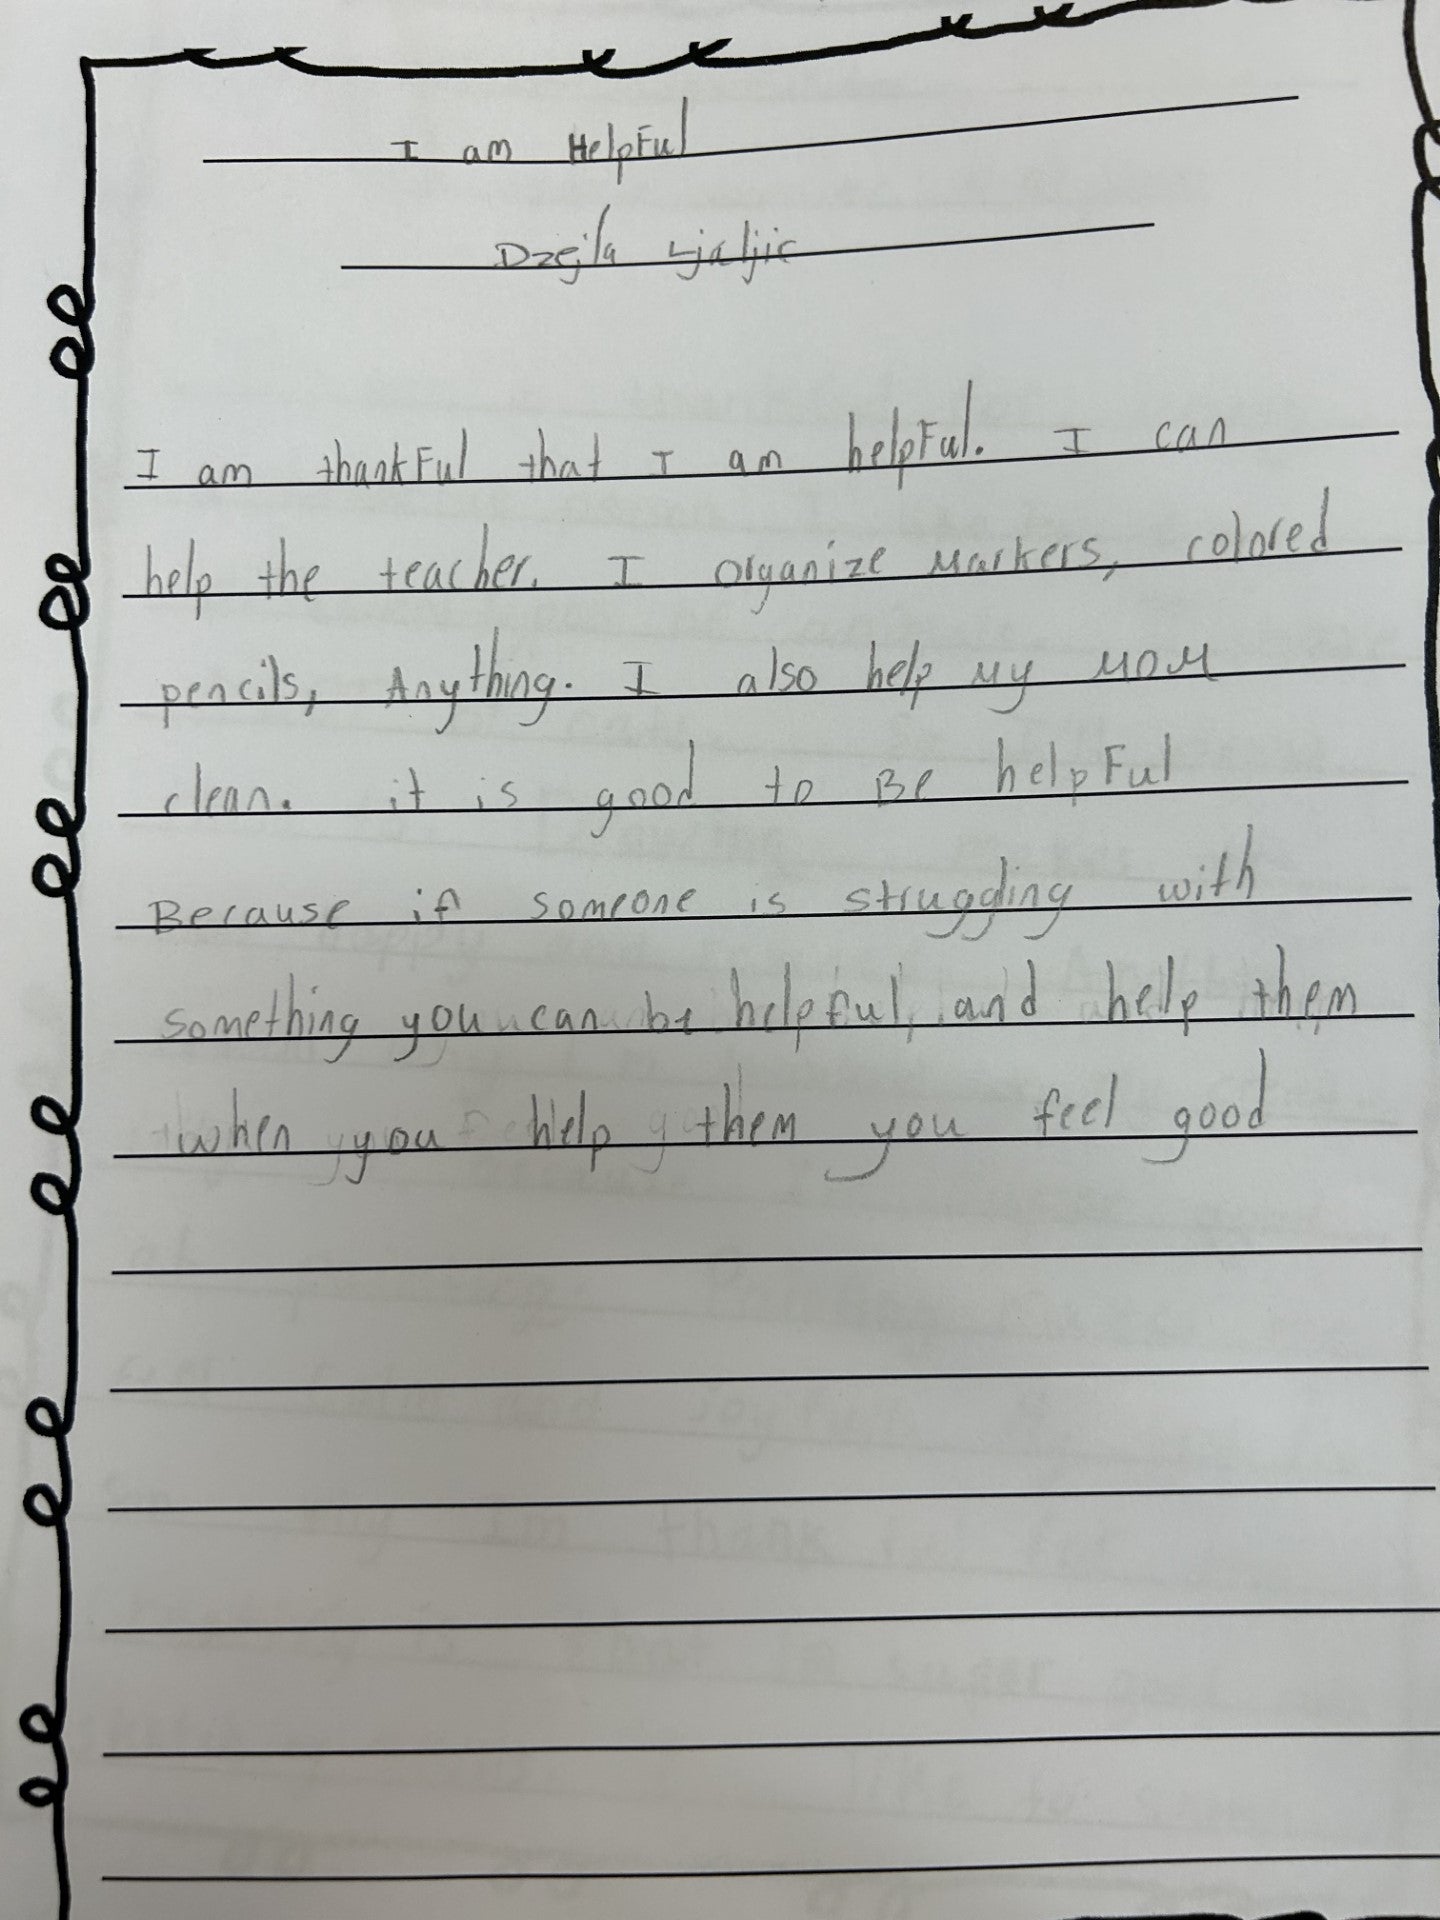 I am HelpFul
Dzejla Ljaljic
I am thankFul that I am helpFul. I can
help the teacher. I organize Markers, colored
pencils, Anything. I also help My MOM
clean. it is good to Be helpFul
Because if someone is struggling with
something you can be helpful, and help them
when you help them you feel good